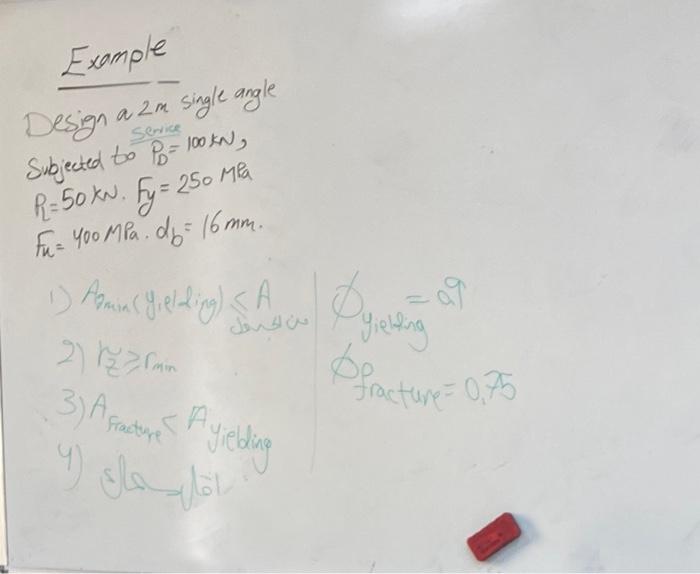 Example
Design a 2m single angle
service
Subjected to P_D = 100 kN,
P_L = 50 kN. Fy = 250 MPa
Fu = 400 MPa. d_b = 16 mm.
1) A_gmin (yielding) ≤ A من الجدول
2) r_z ≥ r_min
3) A_Fracture < A_yielding
4)
ϕ_yielding = 0.9
ϕ_fracture = 0.75